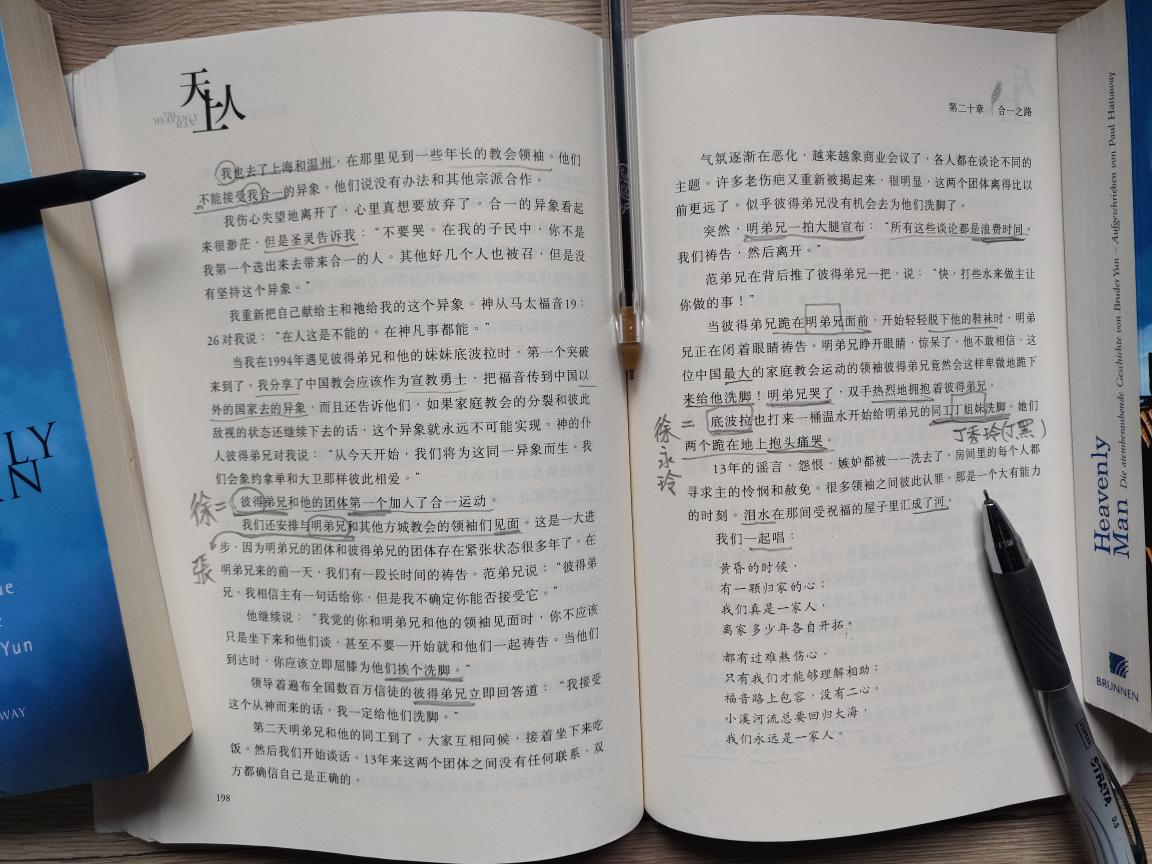 天上人
THE
HEAVENLY
MAN
我也去了上海和温州，在那里见到一些年长的教会领袖。他们
不能接受我合一的异象。他们说没有办法和其他宗派合作。
我伤心失望地离开了，心里真想要放弃了。合一的异象看起
来很渺茫，但是圣灵告诉我：“不要哭。在我的子民中，你不是
我第一个选出来去带来合一的人。其他好几个人也被召，但是没
有坚持这个异象。”
我重新把自己献给主和祂给我的这个异象。神从马太福音19：
26对我说：“在人这是不能的。在神凡事都能。”
当我在1994年遇见彼得弟兄和他的妹妹底波拉时，第一个突破
来到了。我分享了中国教会应该作为宣教勇士，把福音传到中国以
外的国家去的异象，而且还告诉他们，如果家庭教会的分裂和彼此
敌视的状态还继续下去的话，这个异象就永远不可能实现。神的仆
人彼得弟兄对我说：“从今天开始，我们将为这同一异象而生。我
们会象约拿单和大卫那样彼此相爱。”
徐=
彼得弟兄和他的团体第一个加入了合一运动。
我们还安排与明弟兄和其他方城教会的领袖们见面。这是一大进
張
步，因为明弟兄的团体和彼得弟兄的团体存在紧张状态很多年了。在
明弟兄来的前一天，我们有一段长时间的祷告。范弟兄说：“彼得弟
兄，我相信主有一句话给你，但是我不确定你能否接受它。”
他继续说：“我觉的你和明弟兄和他的领袖见面时，你不应该
只是坐下来和他们谈，甚至不要一开始就和他们一起祷告。当他们
到达时，你应该立即屈膝为他们挨个洗脚。”
领导着遍布全国数百万信徒的彼得弟兄立即回答道：“我接受
这个从神而来的话。我一定给他们洗脚。”
第二天明弟兄和他的同工到了。大家互相问候，接着坐下来吃
饭。然后我们开始谈话。13年来这两个团体之间没有任何联系，双
方都确信自己是正确的。
198
第二十章 合一之路
气氛逐渐在恶化，越来越象商业会议了，各人都在谈论不同的
主题。许多老伤疤又重新被揭起来，很明显，这两个团体离得比以
前更远了。似乎彼得弟兄没有机会去为他们洗脚了。
突然，明弟兄一拍大腿宣布：“所有这些谈论都是浪费时间。
我们祷告，然后离开。”
范弟兄在背后推了彼得弟兄一把，说：“快，打些水来做主让
你做的事！”
当彼得弟兄跪在明弟兄面前，开始轻轻脱下他的鞋袜时，明弟
兄正在闭着眼睛祷告。明弟兄睁开眼睛，惊呆了。他不敢相信，这
位中国最大的家庭教会运动的领袖彼得弟兄竟然会这样卑微地跪下
来给他洗脚！明弟兄哭了，双手热烈地拥抱着彼得弟兄。
徐永玲
=
底波拉也打来一桶温水开始给明弟兄的同工丁姐妹洗脚。她们
丁秀玲(丁黑)
两个跪在地上抱头痛哭。
13年的谣言、怨恨、嫉妒都被一一洗去了。房间里的每个人都
寻求主的怜悯和赦免。很多领袖之间彼此认罪。那是一个大有能力
的时刻。泪水在那间受祝福的屋子里汇成了河。
我们一起唱：
黄昏的时候，
有一颗归家的心；
我们真是一家人，
离家多少年各自开拓。
都有过难熬伤心，
只有我们才能够理解相助；
福音路上包容，没有二心。
小溪河流总要回归大海，
我们永远是一家人。
Heavenly
Man
Die atemberaubende Geschichte von Bruder Yun – Aufgeschrieben von Paul Hattaway
BRUNNEN
LY
AN
Yun
WAY
STRATA
0.5